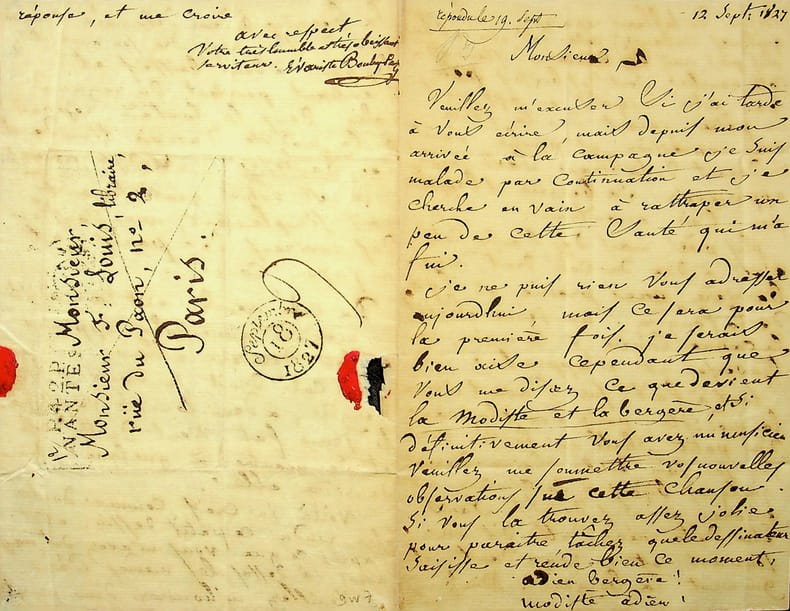 réponse, et me croire
avec respect
Votre très humble et très obéissant
serviteur. Évariste Boulay-Pa
P.P.
NANTES
Monsieur,
Monsieur F. Louis, libraire,
rüe du Paon, nº 2,
Paris.
Septembre
18
1827
répondu le 19. Sept
12 Sept. 1827
Monsieur,
Veuillez m'excuser Si j'ai tardé
à vous écrire, mais depuis mon
arrivée à la campagne je suis
malade par continuation et je
cherche en vain à rattraper un
peu de cette Santé qui m'a
fui.
je ne puis rien vous adresser
aujourdhui mais ce sera pour
la première fois. je serais
bien aise cependant que
vous me disiez ce que devient
la Modiste et la bergère, et Si
définitivement vous avez un musicien
Veuillez me soumettre vos nouvelles
observations sur cette chanson.
Si vous la trouvez assez jolie
pour paraitre, tâchez que le dessinateur
Saisisse et rende bien ce moment,
adieu bergère!
modiste adieu!